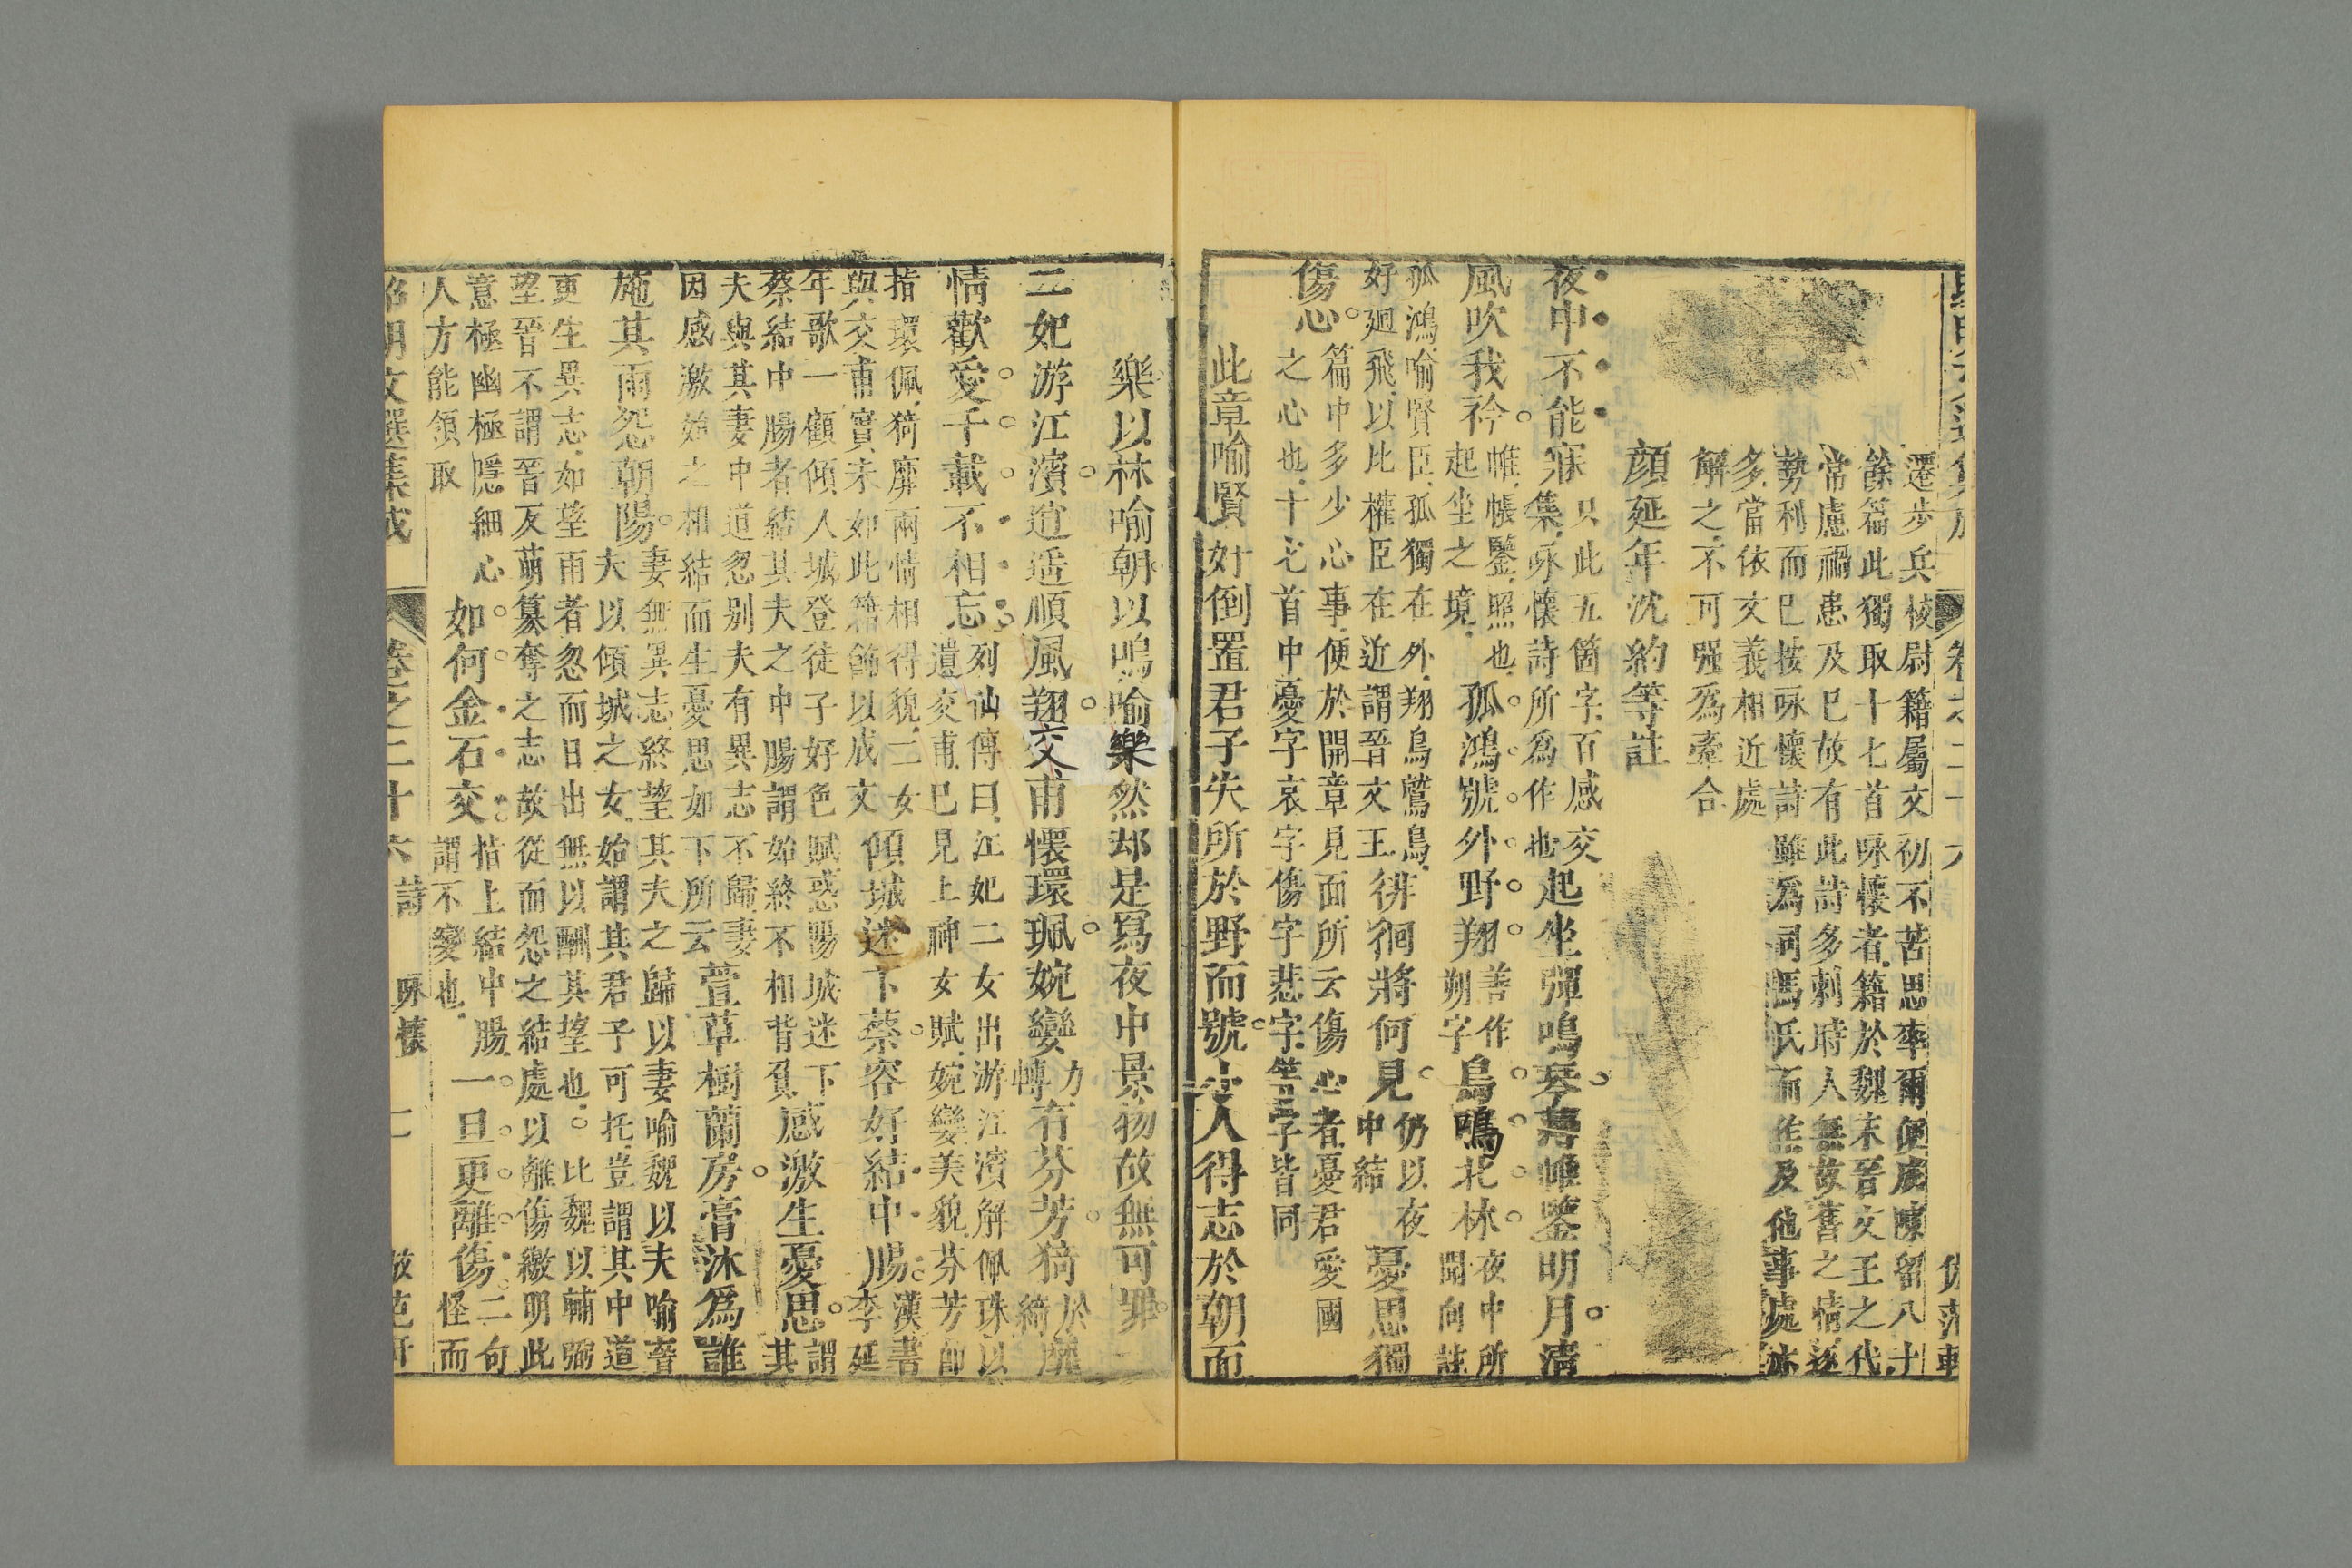 昭明文選集成
卷之二十六
遷步兵校尉籍屬文初不苦思率爾便成陳留八十
餘篇此獨取十七首咏懷者籍於魏末晉文王之代
常慮禍患及已故有此詩多刺時人無故舊之情逐
勢利而已按咏懷詩雖爲司馬氏而作及他事處亦
多當依文義相近處
解之不可强爲牽合
顔延年沈約等註
夜中不能寐
只此五箇字百感交
集咏懷詩所爲作也
起坐彈鳴琴薄帷鑒明月清
風吹我衿
帷帳鑒照也
起坐之境
孤鴻號外野翔
善作
朔字
鳥鳴北林
夜中所
聞向註
孤鴻喻賢臣孤獨在外翔鳥鷙鳥
好廻飛以比權臣在近謂晉文王
徘徊將何見
仍以夜
中結
憂思獨
傷心
篇中多少心事便於開章見面所云傷心者憂君愛國
之心也十七首中憂字哀字傷字悲字等字皆同
此章喻賢奸倒置君子失所於野而號小人得志於朝而
樂以林喻朝以鳴喻樂然却是寫夜中景物故無可罪
二妃游江濱逍遥順風翔交甫懷環珮婉孌
力
轉
有芬芳猗
於
綺
靡
情歡愛千載不相忘
列仙傳曰江妃二女出游江濱解佩珠以
遺交甫已見上神女賦婉孌美貌芬芳卽
指環佩猗靡兩情相得貌二女
與交甫實未如此籍飾以成文
傾城迷下蔡容好結中腸
漢書
李延
年歌一顧傾人城登徒子好色賦惑陽城迷下
蔡結中腸者結其夫之中腸謂始終不相背負
感激生憂思
謂
其
夫與其妻中道忽别夫有異志不歸妻
因感激始之相結而生憂思如下所云
萱草樹蘭房膏沐爲誰
施其雨怨朝陽
妻無異志終望其夫之歸以妻喻魏以夫喻晉
夫以傾城之女始謂其君子可托豈謂其中道
更生異志如望雨者忽而日出無以酬其望也比魏以輔弼
望晉不謂晉反萌簒奪之志故從而怨之結處以離傷繳明此
意極幽極隱細心
人方能領取
如何金石交
指上結中腸
謂不變也
一旦更離傷
二句
怪而
昭明文選集成
卷之二十六詩
咏懷
二